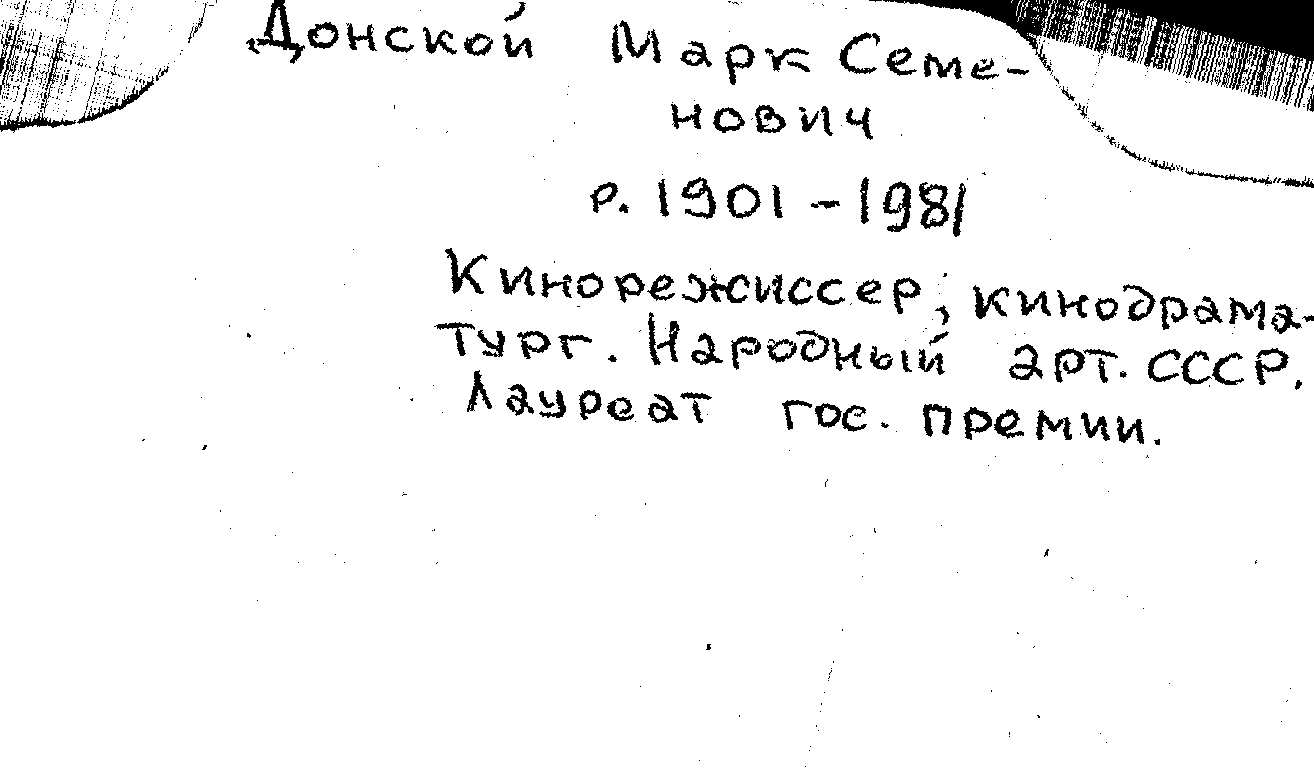 Донской Марк Семе-
нович
р. 1901 - 1981
Кинорежиссер, кинодрама-
тург. Народный арт. СССР,
Лауреат гос. премии.